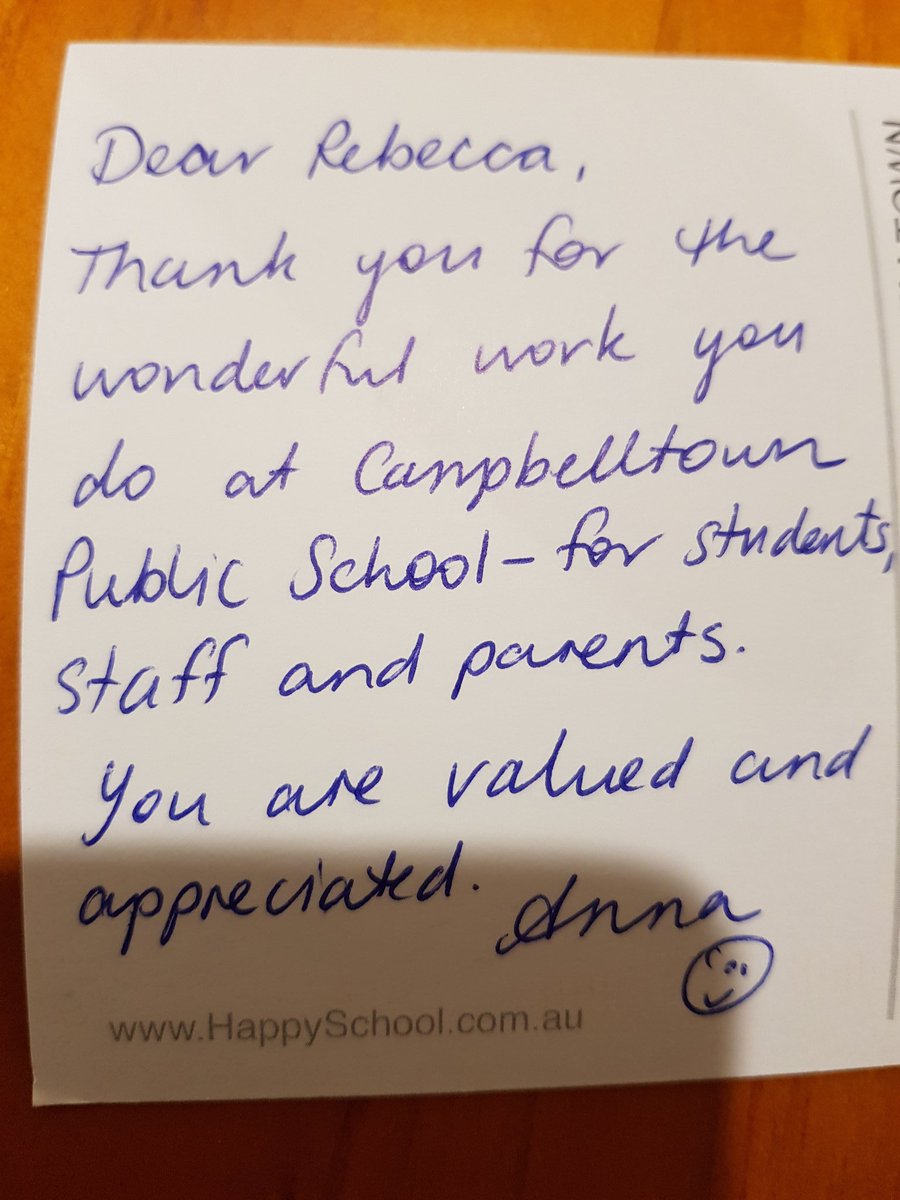 Dear Rebecca,
Thank you for the
wonderful work you
do at Campbelltown
Public School - for students,
staff and parents.
You are valued and
appreciated. Anna
www.HappySchool.com.au